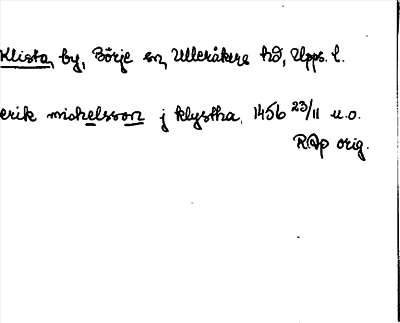 Klista, by, Börje sn, Ulleråkers hd, Upps. l.
erik michelsson j klystha, 1456 23/11 u.o.
RAp orig.